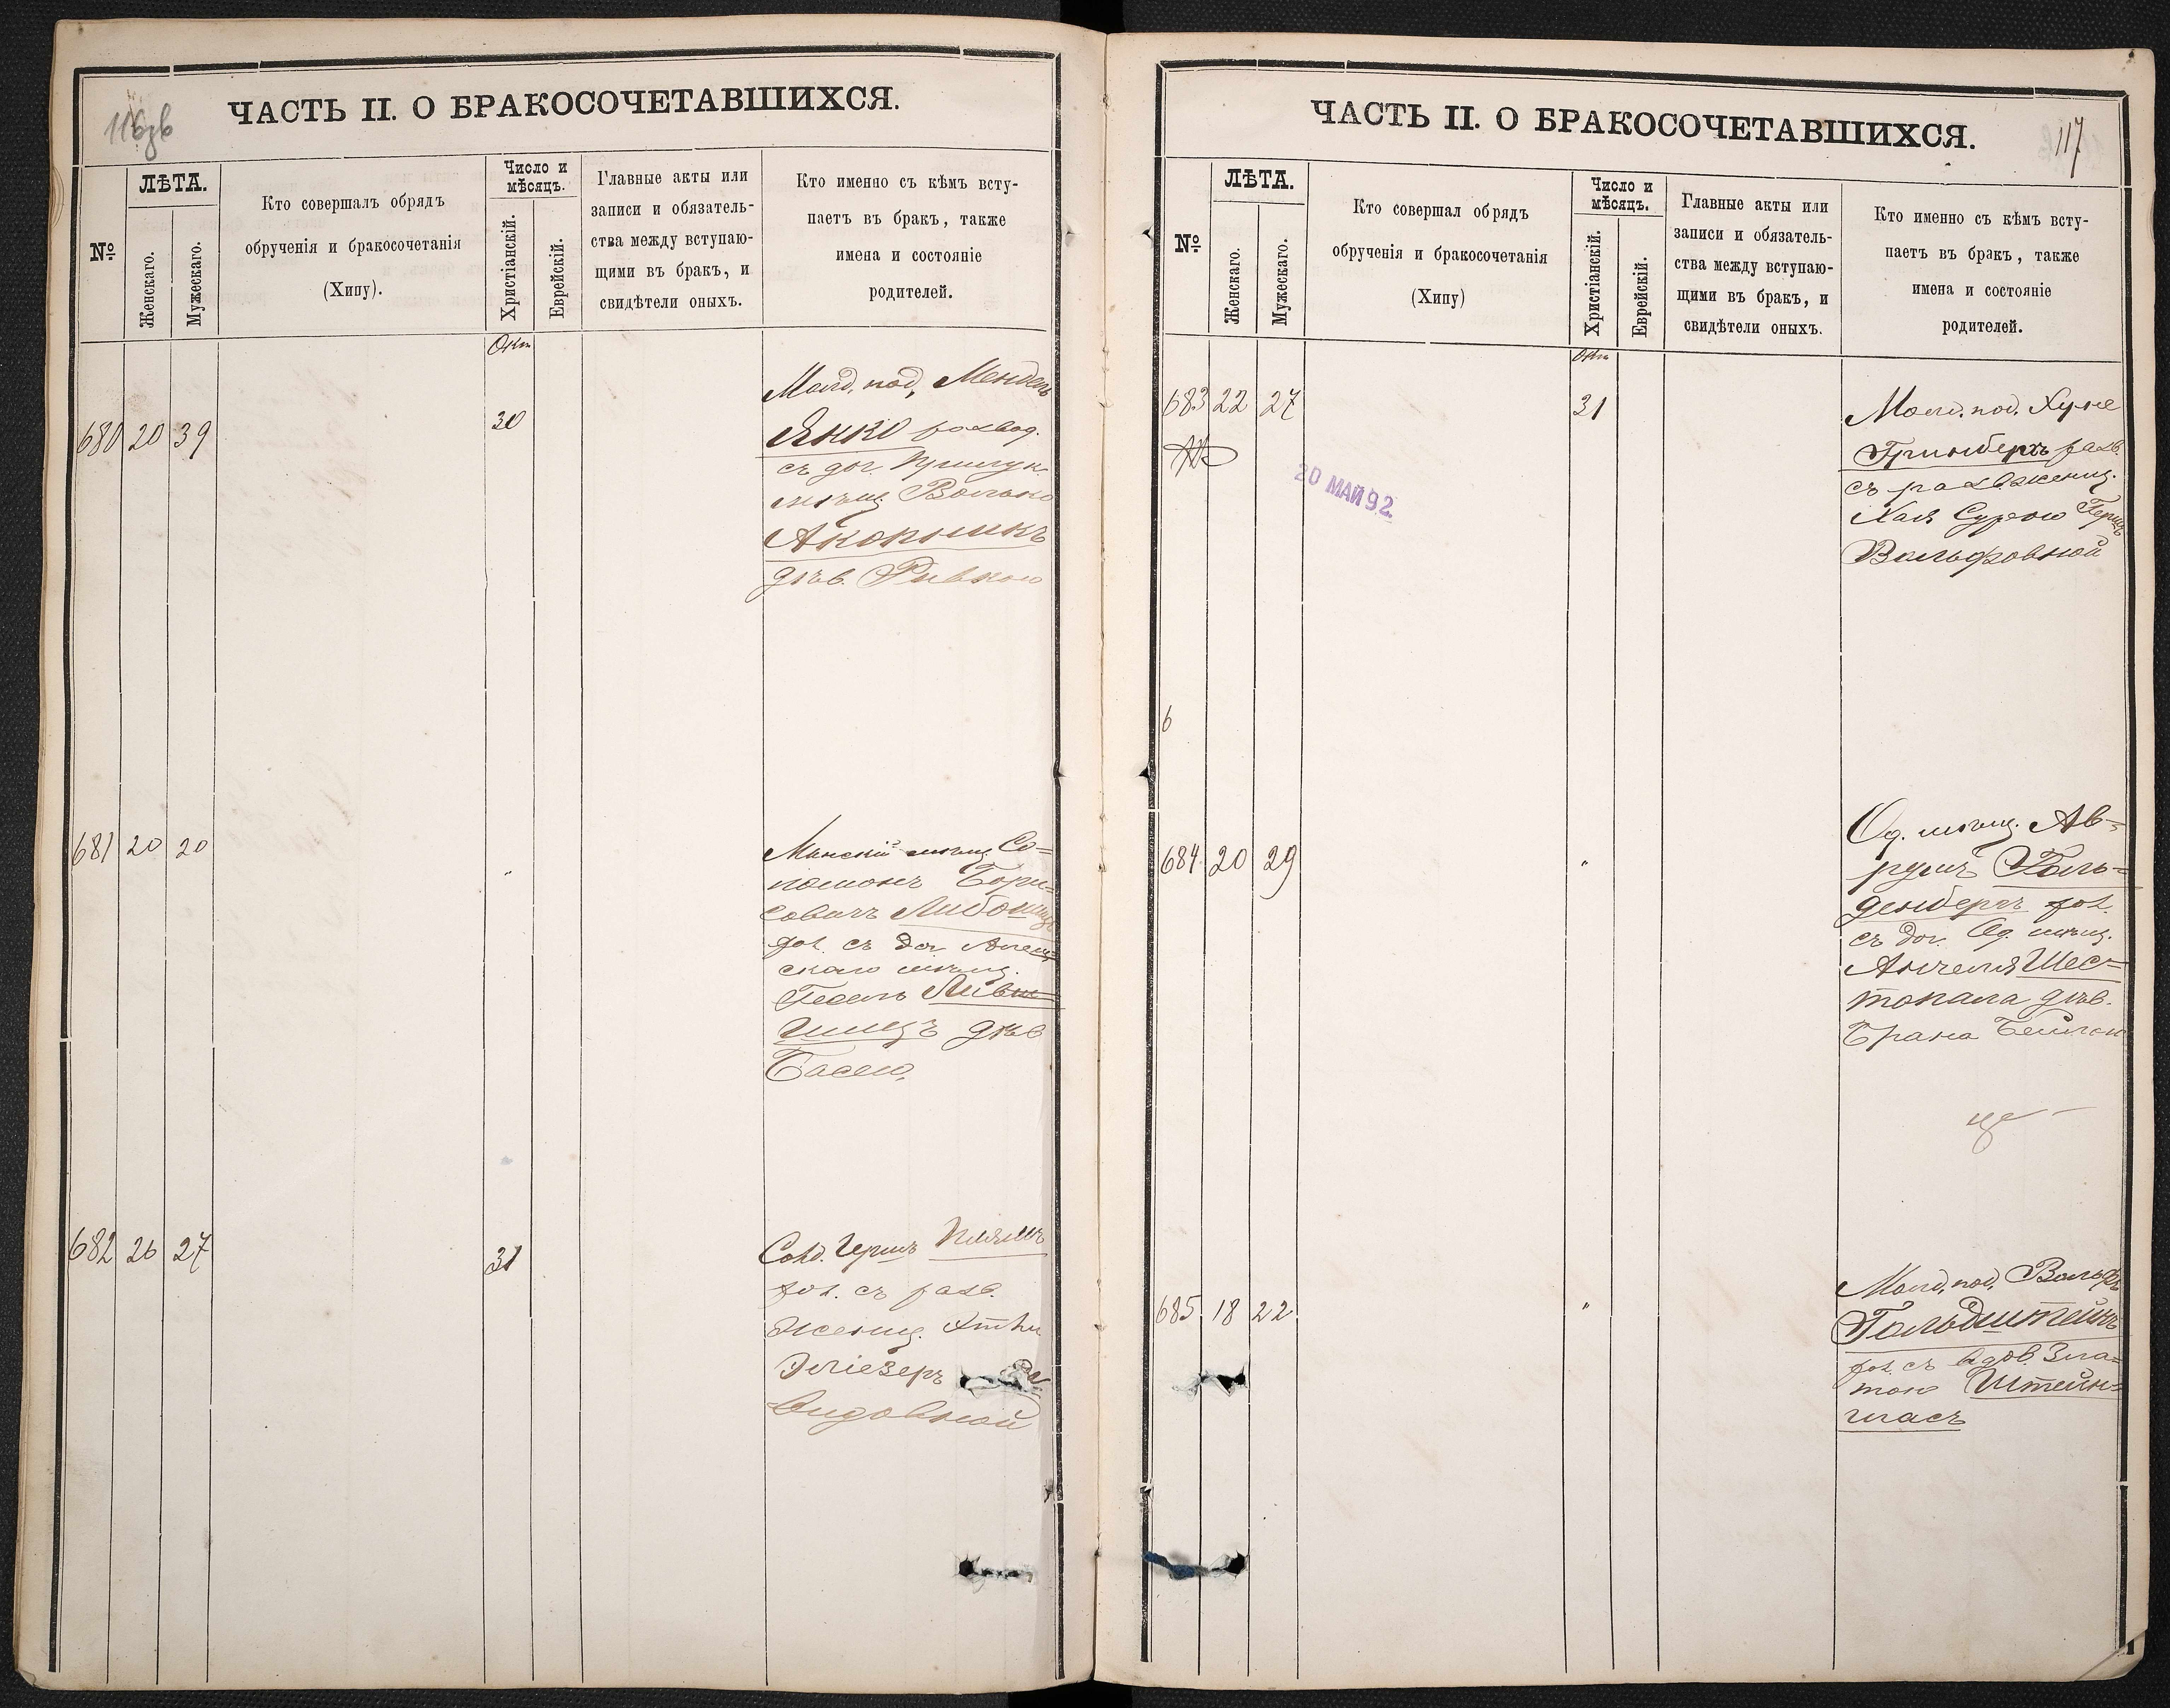 116 зв
ЧАСТЬ II. О БРАКОСОЧЕТАВШИХСЯ.
№
ЛѢТА.
Женскаго.
Мужескаго.
Кто совершалъ обрядъ
обрученія и бракосочетанія
(Хипу).
Число и
мѣсяцъ.
Христіанскій.
Еврейскій.
Главные акты или
записи и обязатель-
ства между вступаю-
щими въ бракъ, и
свидѣтели оныхъ.
Кто именно съ кѣмъ всту-
паетъ въ бракъ, также
имена и состояніе
родителей.
Окт
680 20 39
30
Молд. под, Мендель
Янко развод.
съ доч.
мѣщ Волько
Акопникъ
дѣв. Ривкою
681 20 20
"
Минскій мѣщ Со=
ломонъ Бори=
совичъ Либошицъ
хол. съ доч.
скаго мѣщ.
Гесель Ливи=
шицъ дѣв
Басею,
682 26 27
31
Солд. Герш
хол. съ разв.
женщ.
Эліезеръ
Видовной
ЧАСТЬ II. О БРАКОСОЧЕТАВШИХСЯ.
117
№
ЛѢТА.
Женскаго.
Мужескаго.
Кто совершал обрядъ
обрученія и бракосочетанія
(Хипу)
Число и
мѣсяцъ.
Христіанскій.
Еврейскій.
Главные акты или
записи и обязатель-
ства между вступаю-
щими въ бракъ, и
свидѣтели оныхъ.
Кто именно съ кѣмъ всту-
паетъ въ бракъ, также
имена и состояніе
родителей.
Окт
683 22 27
31
20 МАЙ 92.
Молд. под. Хуне
Гринберхъ разв.
съ разв. женщ.
Хая Сурою Герш
Вольфовной
6
684 20 29
"
Од. мѣщ. Ав=
румъ Голь=
денбергъ хол.
съ доч. Од. мѣщ.
Анчеля Шес=
топала дѣв.
Брана Бейлою
685. 18 22.
"
Молд. под. Вольфъ
Гольдштейнъ
хол. съ вдов. Зла=
тою Штейн=
гласъ